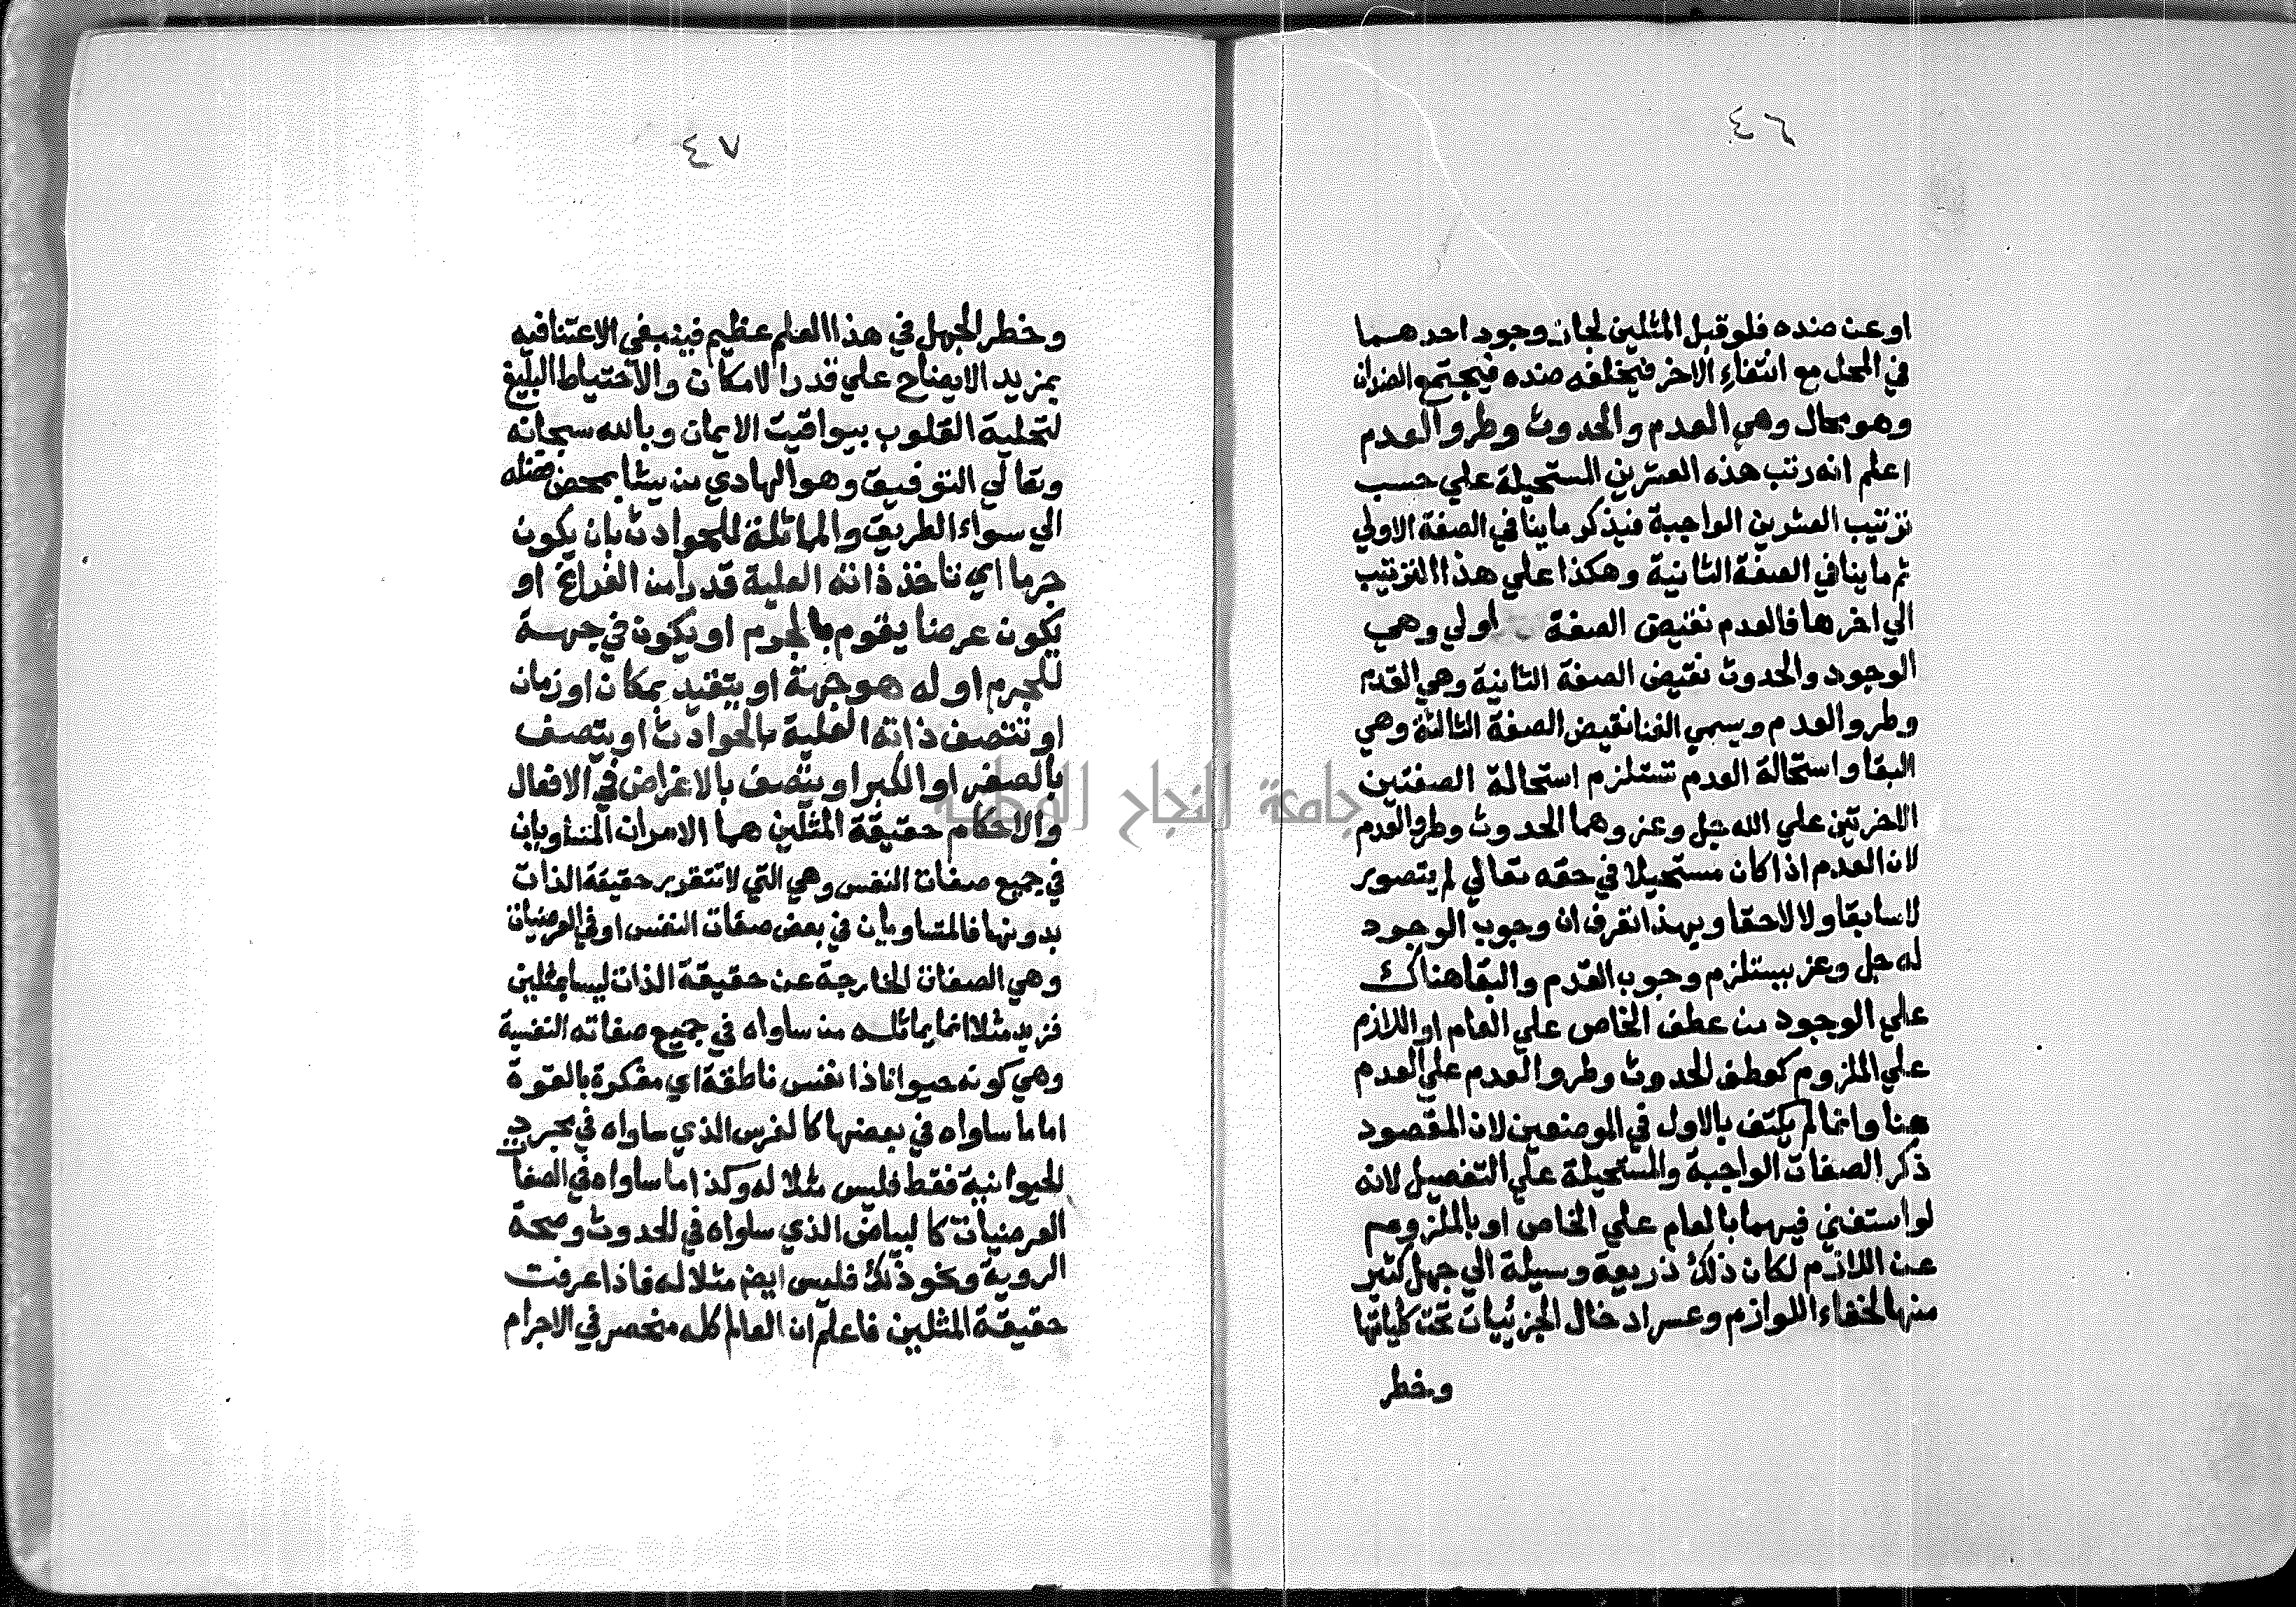 ٤٦
او عن ضده فلو قبل المثلين لجاز وجود احدهما
في المحل مع انتفاء الاخر فيخلفه ضده فيجتمع الضدان
وهو محال وهي العدم والحدوث وطرو العدم
اعلم انه رتب هذه العشرين المستحيلة علي حسب
ترتيب العشرين الواجبة فيذكر ما ينافي الصفة الاولي
ثم ما ينافي الصفة الثانية وهكذا علي هذا الترتيب
الي اخرها فالعدم نقيض الصفة اولي وهي
الوجود والحدوث نقيض الصفة الثانية وهي القدم
وطرو العدم ويسمي الفنا نقيض الصفة الثالثة وهي
البقا واستحالة العدم تستلزم استحالة الصفتين
الاخرتين علي الله جل وعز وهما الحدوث وطرو العدم
لان العدم اذا كان مستحيلا في حقه تعالي لم يتصور
لا سابقا ولا لاحقا وبهذا تعرف ان وجوب الوجود
له جل وعز يستلزم وجوب القدم والبقا هناك
علي الوجود من عطف الخاص علي العام او اللازم
علي الملزوم كعطف الحدوث وطرو العدم علي العدم
هنا وانما لم يكتف بالاول في الموضعين لان المقصود
ذكر الصفات الواجبة والمستحيلة علي التفصيل لانه
لو استغني فيهما بالعام علي الخاص او بالملزوم
عن اللازم لكان ذلك ذريعة وسيلة الي جهل كثير
منها لخفاء اللوازم وعسر ادخال الجزئيات تحت كلياتها
وخطر
٤٧
وخطر الجهل في هذا العلم عظيم فينبغي الاعتنا فيه
بمزيد الايضاح علي قدر الامكان والاحتياط البليغ
لتحلية القلوب بيواقيت الايمان وبالله سبحانه
وتعالي التوفيق وهو الهادي من يشا بمحض فضله
الي سواء الطريق والمماثلة للحوادث بان يكون
جرما اي تاخذ ذاته العلية قدرا من الفراغ او
يكون عرضا يقوم بالجرم او يكون في جهة
للجرم او له هو جهة او يتقيد بمكان او زمان
او تتصف ذاته العلية بالحوادث او يتصف
بالصغر او الكبر او يتصف بالاغراض في الافعال
والاحكام حقيقة المثلين هما الامران المتساويان
في جميع صفات النفس وهي التي لا تتقرر حقيقة الذات
بدونها فالمتساويان في بعض صفات النفس او في العرضيات
وهي الصفات الخارجة عن حقيقة الذات ليسا بمثلين
فزيد مثلا انما يماثله من ساواه في جميع صفاته النفسية
وهي كونه حيوانا ذا نفس ناطقة اي مفكرة بالقوة
اما ما ساواه في بعضها كالفرس الذي ساواه في مجرد
الحيوانية فقط فليس مثلا له وكذا ما ساواه في الصفا
العرضيات كالبياض الذي ساواه في الحدوث وصحة
الروية ونحو ذلك فليس ايضا مثلا له فاذا عرفت
حقيقة المثلين فاعلم ان العالم كله منحصر في الاجرام
جامعة النجاح الوطنية